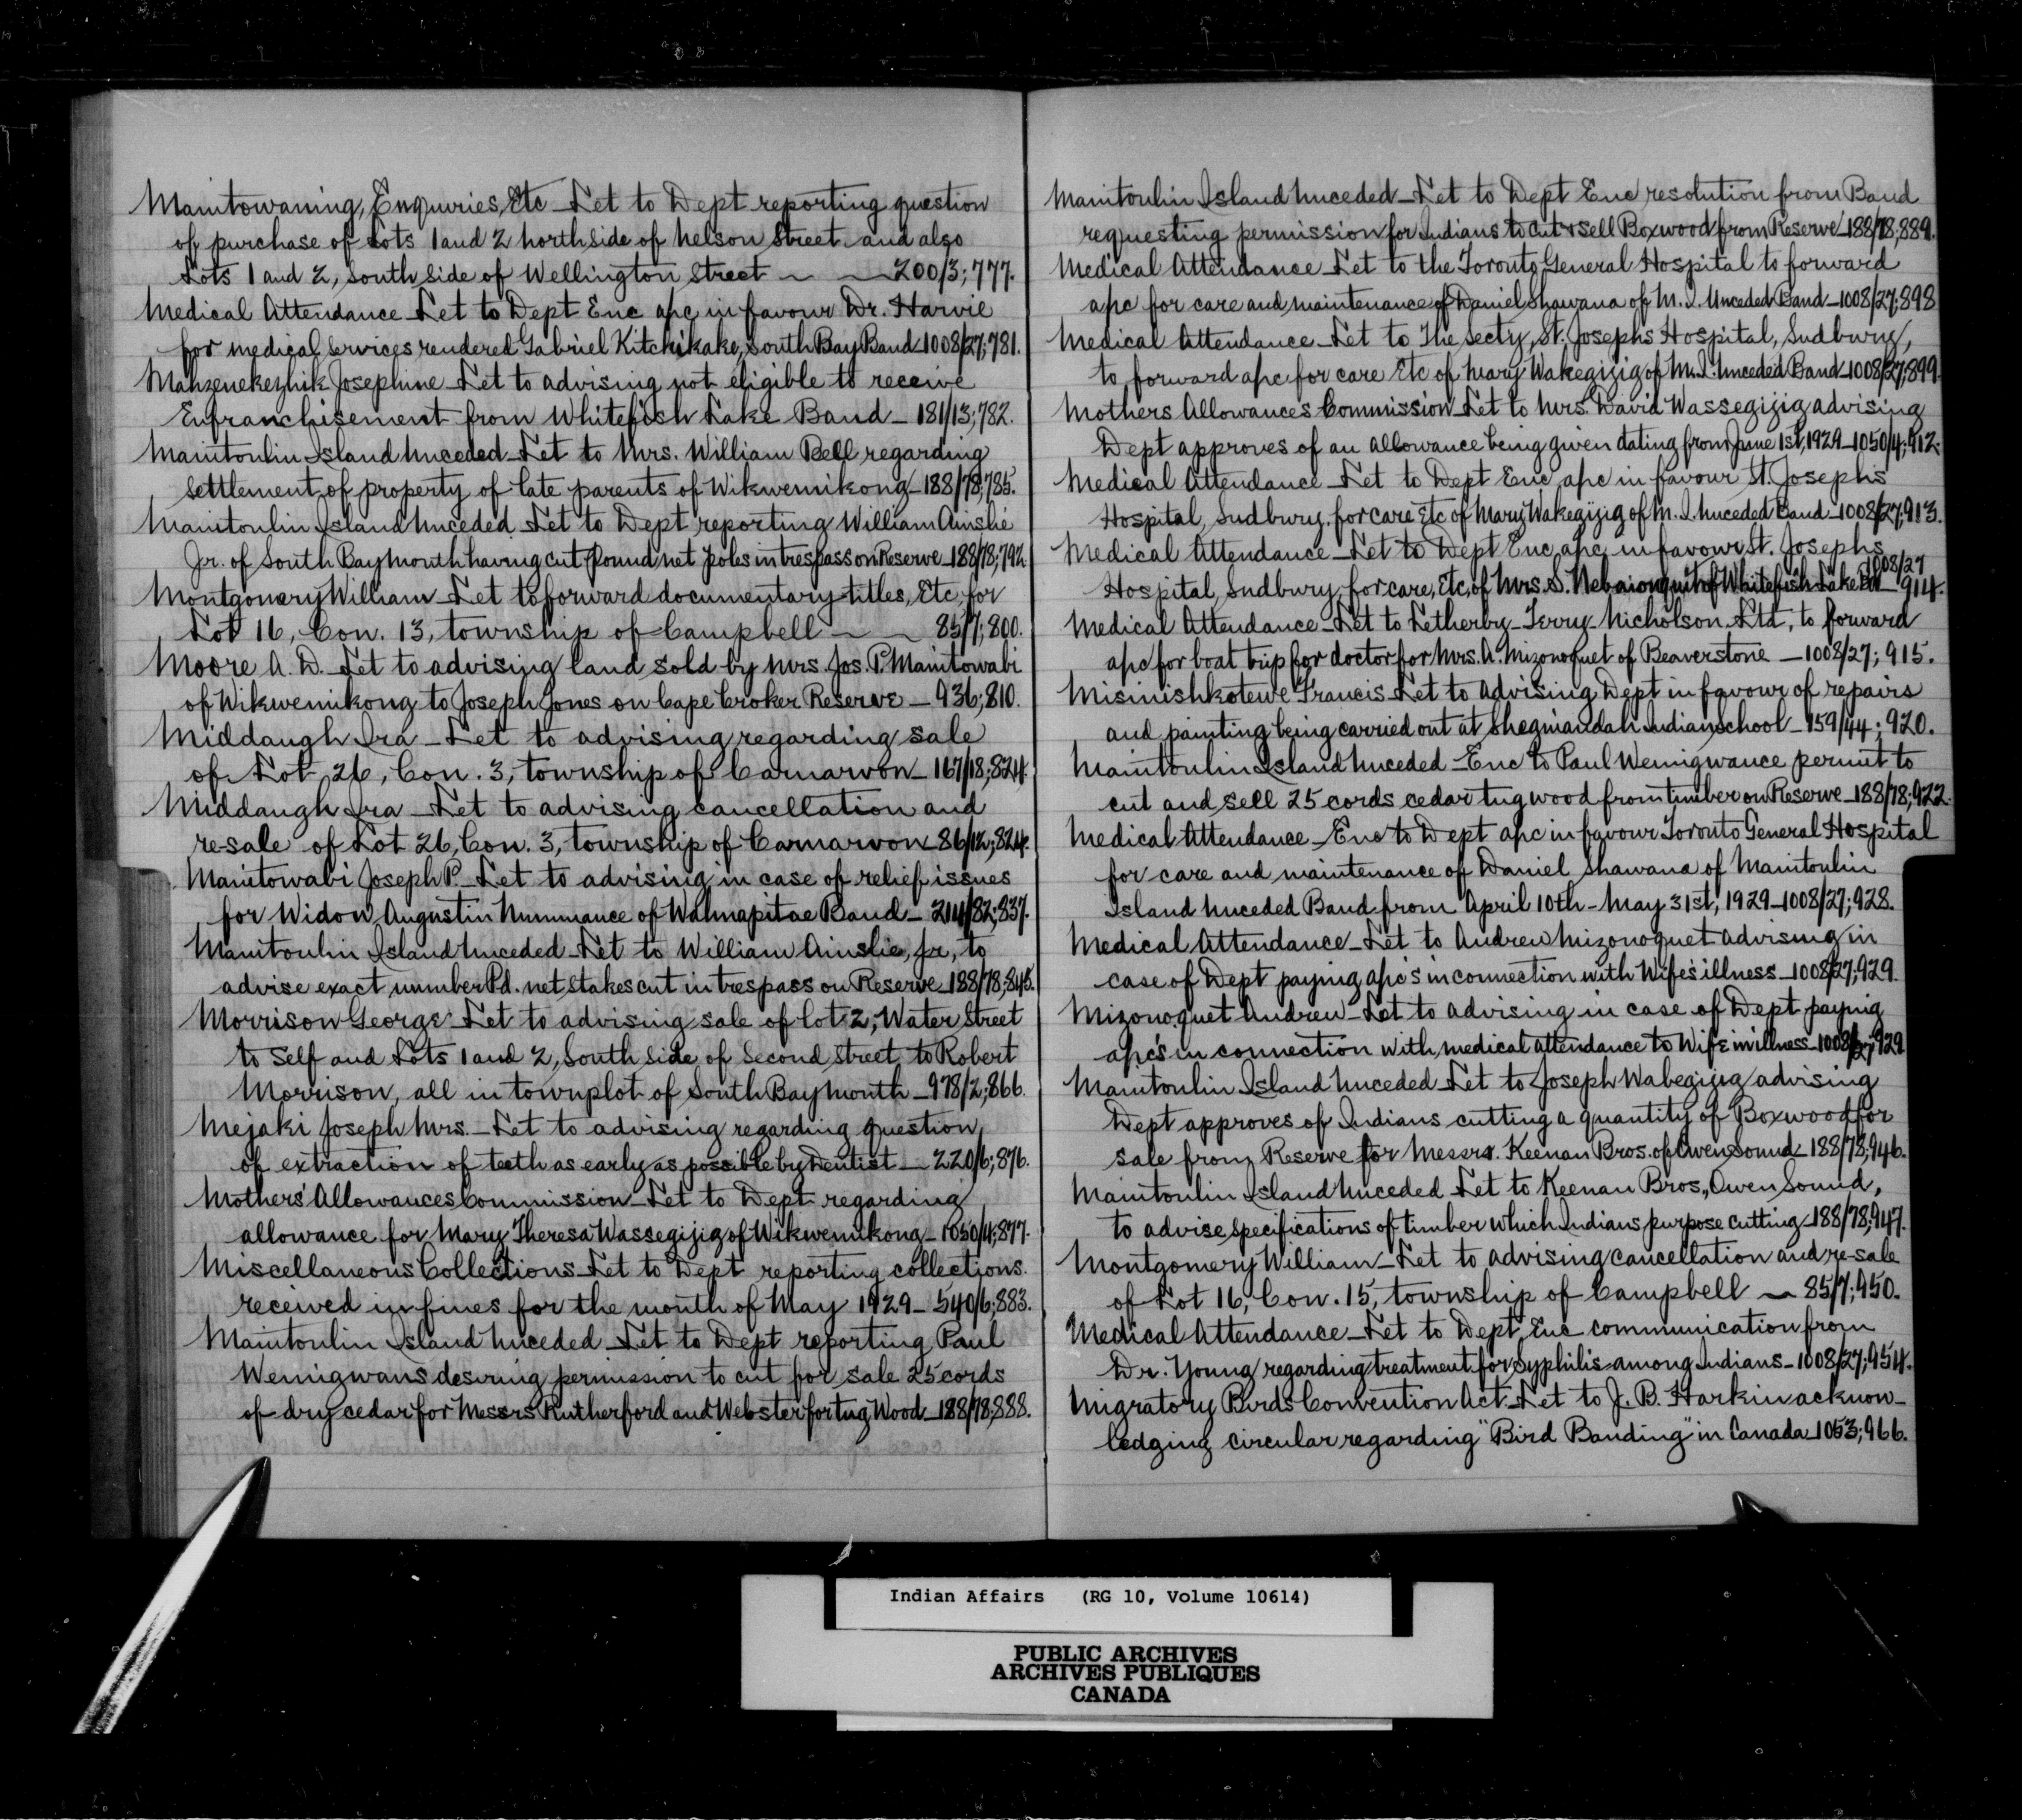 Manitowaning, Enquries, Etc - Let to Dept reporting question
of purchase of Lots 1 and 2 north side of Nelson Street and also
Lots 1 and 2, South side of Wellington Street - 200/3; 777.
Medical Attendance - Let to Dept Enc a/c in favour Dr. Harvie
for medical services rendered Gabriel Kitchikake, South Bay Band - 1008/27; 781.
Mahzenekezhik Josephine - Let to advising not eligible to receive
Enfranchisement from Whitefish Lake Band - 181/13; 782.
Manitoulin Island Unceded - Let to Mrs. William Bell regarding
settlement of property of late parents of Wikwemikong - 188/78; 785.
Manitoulin Island Unceded - Let to Dept reporting William Ainslie
Jr. of South Baymouth having cut pound net poles in trespass on Reserve - 188/78; 792.
Montgomery William - Let to forward documentary titles, Etc, for
Lot 16, Con. 13, township of Campbell - 85/7; 800.
Moore A. D. - Let to advising land sold by Mrs. Jos. P. Manitowabi
of Wikwemikong to Joseph Jones on Cape Croker Reserve - 936; 810.
Middaugh Ira - Let to advising regarding sale
of Lot 26, Con. 3, township of Carnarvon - 167/18; 824.
Middaugh Ira - Let to advising cancellation and
re-sale of Lot 26, Con. 3, township of Carnarvon - 86/12; 824.
Manitowabi Joseph P. - Let to advising in case of relief issues
for Widow Augustin Nummance of Wahnapitae Band - 214/82; 837.
Manitoulin Island Unceded - Let to William Ainslie, Jr, to
advise exact number Pd. net stakes cut in trespass on Reserve - 188/78; 845.
Morrison George - Let to advising sale of lot 2, Water Street
to Self and Lots 1 and 2, South Side of Second Street to Robert
Morrison, all in townplot of South Baymouth - 978/2; 866.
Mejaki Joseph Mrs. - Let to advising regarding question
of extraction of teeth as early as possible by Dentist - 220/6; 876.
Mothers' Allowances Commission - Let to Dept regarding
allowance for Mary Theresa Wassegijig of Wikwemikong - 1050/4; 877.
Miscellaneous Collections - Let to Dept reporting collections
received in fines for the month of May 1929 - 540/6; 883.
Manitoulin Island Unceded - Let to Dept reporting Paul
Wemigwans desiring permission to cut for sale 25 cords
of dry cedar for Messrs Rutherford and Webster for tug Wood - 188/78; 888.
Manitoulin Island Unceded - Let to Dept Enc resolution from Band
requesting permission for Indians to cut & sell Boxwood from Reserve - 188/78; 889.
Medical Attendance - Let to the Toronto General Hospital to forward
a/c for care and maintenance of Daniel Shawana of M. I. Unceded Band - 1008/27; 898
Medical Attendance - Let to The Secty, St. Josephs Hospital, Sudbury,
to forward a/c for care Etc of Mary Wakegijig of M. I. Unceded Band - 1008/27; 899.
Mothers Allowances Commission - Let to Mrs. David Wassegijig advising
Dept approves of an allowance being given dating from June 1st, 1929 - 1050/4; 912.
Medical Attendance - Let to Dept Enc a/c in favour St. Josephs
Hospital, Sudbury, for care Etc of Mary Wakegijig of M. I. Unceded Band - 1008/27; 913.
Medical Attendance - Let to Dept Enc a/c in favour St. Josephs
Hospital, Sudbury, for care, Etc, of Mrs. S. Nebaionquit of Whitefish Lake Bd - 1008/27 914.
Medical Attendance - Let to Letherby - Terry - Nicholson Ltd, to forward
a/c for boat trip for doctor for Mrs. A. Mizonoquet of Beaverstone - 1008/27; 915.
Misinishkotewe Francis - Let to advising Dept in favour of repairs
and painting being carried out at Sheguiandah Indian School - 159/44; 920.
Manitoulin Island Unceded - Enc to Paul Wemigwance permit to
cut and sell 25 cords cedar tug wood from timber on Reserve - 188/78; 922.
Medical Attendance - Enc to Dept a/c in favour Toronto General Hospital
for care and maintenance of Daniel Shawana of Manitoulin
Island Unceded Band from April 10th - May 31st, 1929 - 1008/27; 928.
Medical Attendance - Let to Andrew Mizonoquet advising in
case of Dept paying a/c's in connection with Wife's illness - 1008/27; 929.
Mizonoquet Andrew - Let to advising in case of Dept paying
a/c's in connection with medical attendance to Wife in illness - 1008/27; 929.
Manitoulin Island Unceded - Let to Joseph Wabegijig advising
Dept approves of Indians cutting a quantity of Boxwood for
sale from Reserve for Messrs. Keenan Bros. of Owen Sound - 188/78; 946.
Manitoulin Island Unceded - Let to Keenan Bros., Owen Sound,
to advise specifications of timber which Indians purpose cutting - 188/78; 947.
Montgomery William - Let to advising cancellation and re-sale
of Lot 16, Con. 15, township of Campbell - 85/7; 950.
Medical Attendance - Let to Dept Enc communication from
Dr. Young regarding treatment for Syphilis among Indians - 1008/27; 954.
Migratory Birds Convention Act. - Let to J. B. Harkin acknow-
ledging circular regarding "Bird Banding" in Canada - 1053; 966.
Indian Affairs (RG 10, Volume 10614)
PUBLIC ARCHIVES
ARCHIVES PUBLIQUES
CANADA